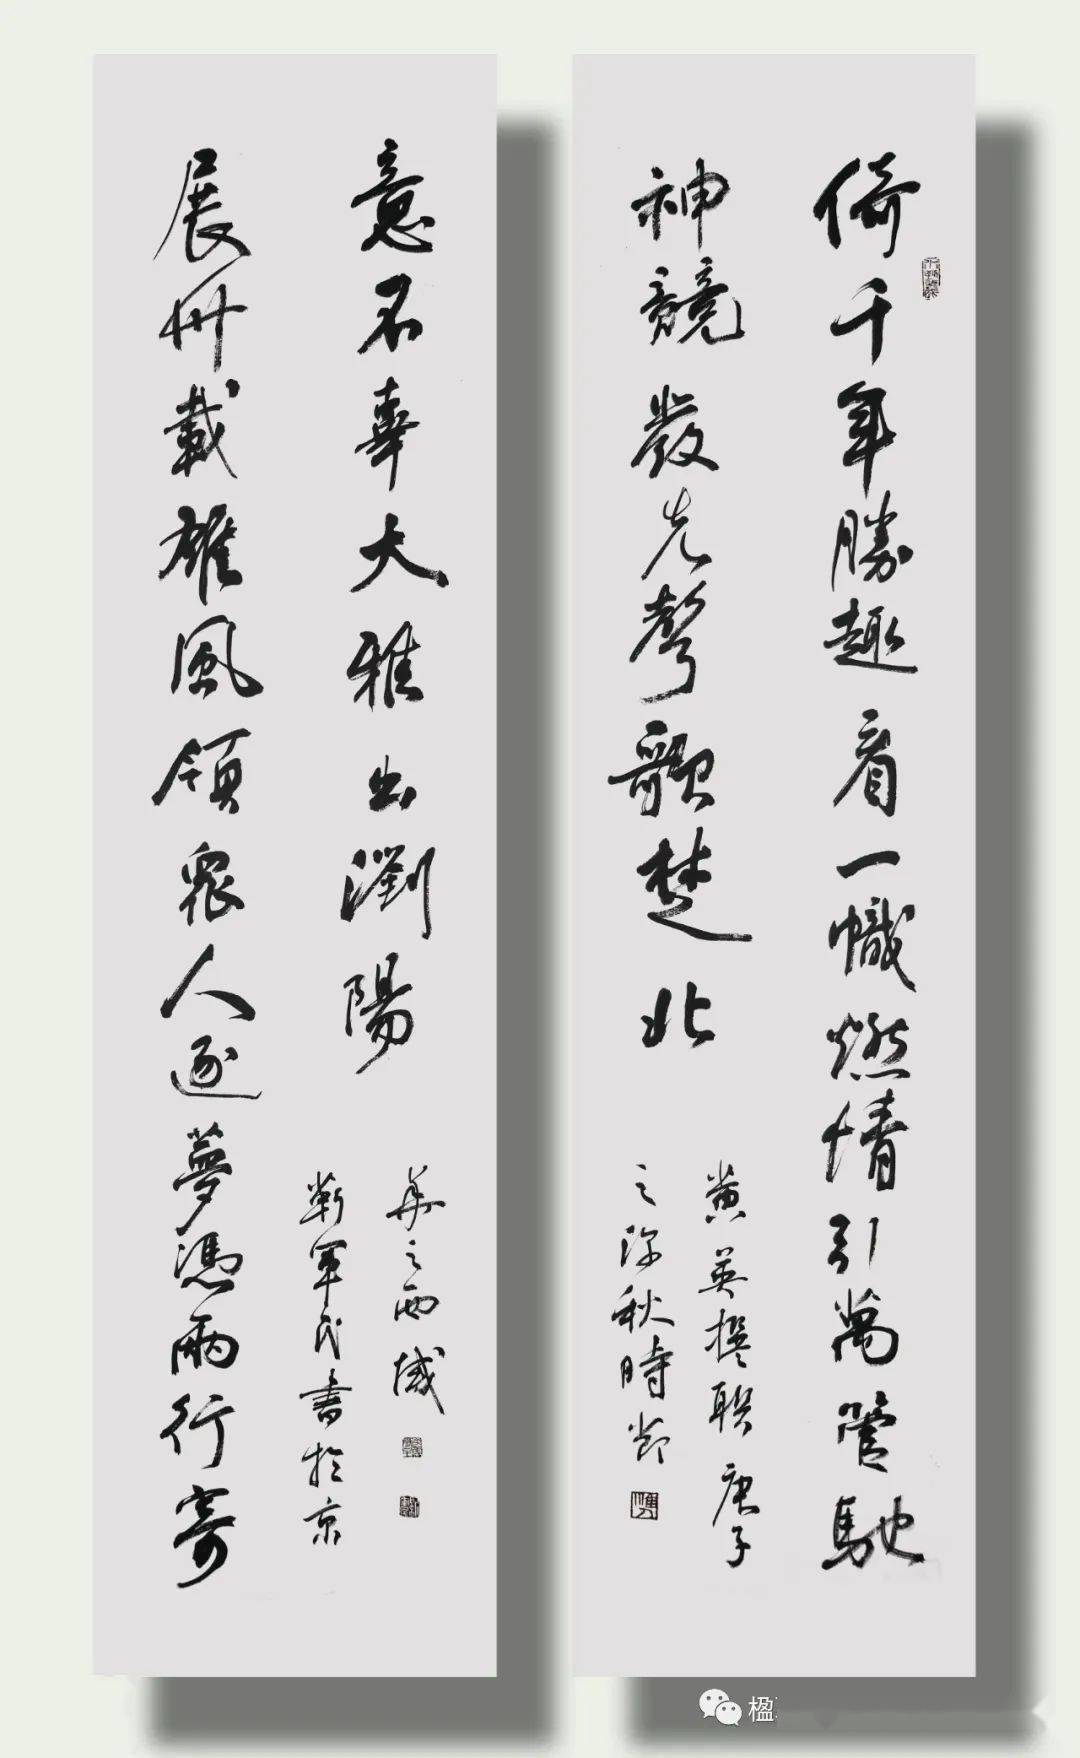 倚千年勝趣看一幟燃情引萬管馳
神競發先聲歌楚北
黄英撰联庚子
之深秋時節
展卅載雄風領衆人逐夢憑兩行寄
意不辜大雅出瀏陽
靳軍民書於京
華之西域
楹